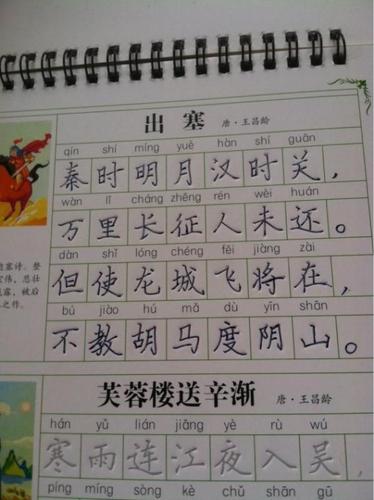 出 塞 唐·王昌龄
qín shí míng yuè hàn shí guān
秦时明月汉时关，
wàn lǐ cháng zhēng rén wèi huán
万里长征人未还。
dàn shǐ lóng chéng fēi jiàng zài
但使龙城飞将在，
bú jiào hú mǎ dù yīn shān
不教胡马度阴山。
塞诗。整
伟，忍壮
露，被后
之作。
芙蓉楼送辛渐 唐·王昌龄
hán yǔ lián jiāng yè rù wú
寒雨连江夜入吴，
píng míng sòng kè chǔ shān gū